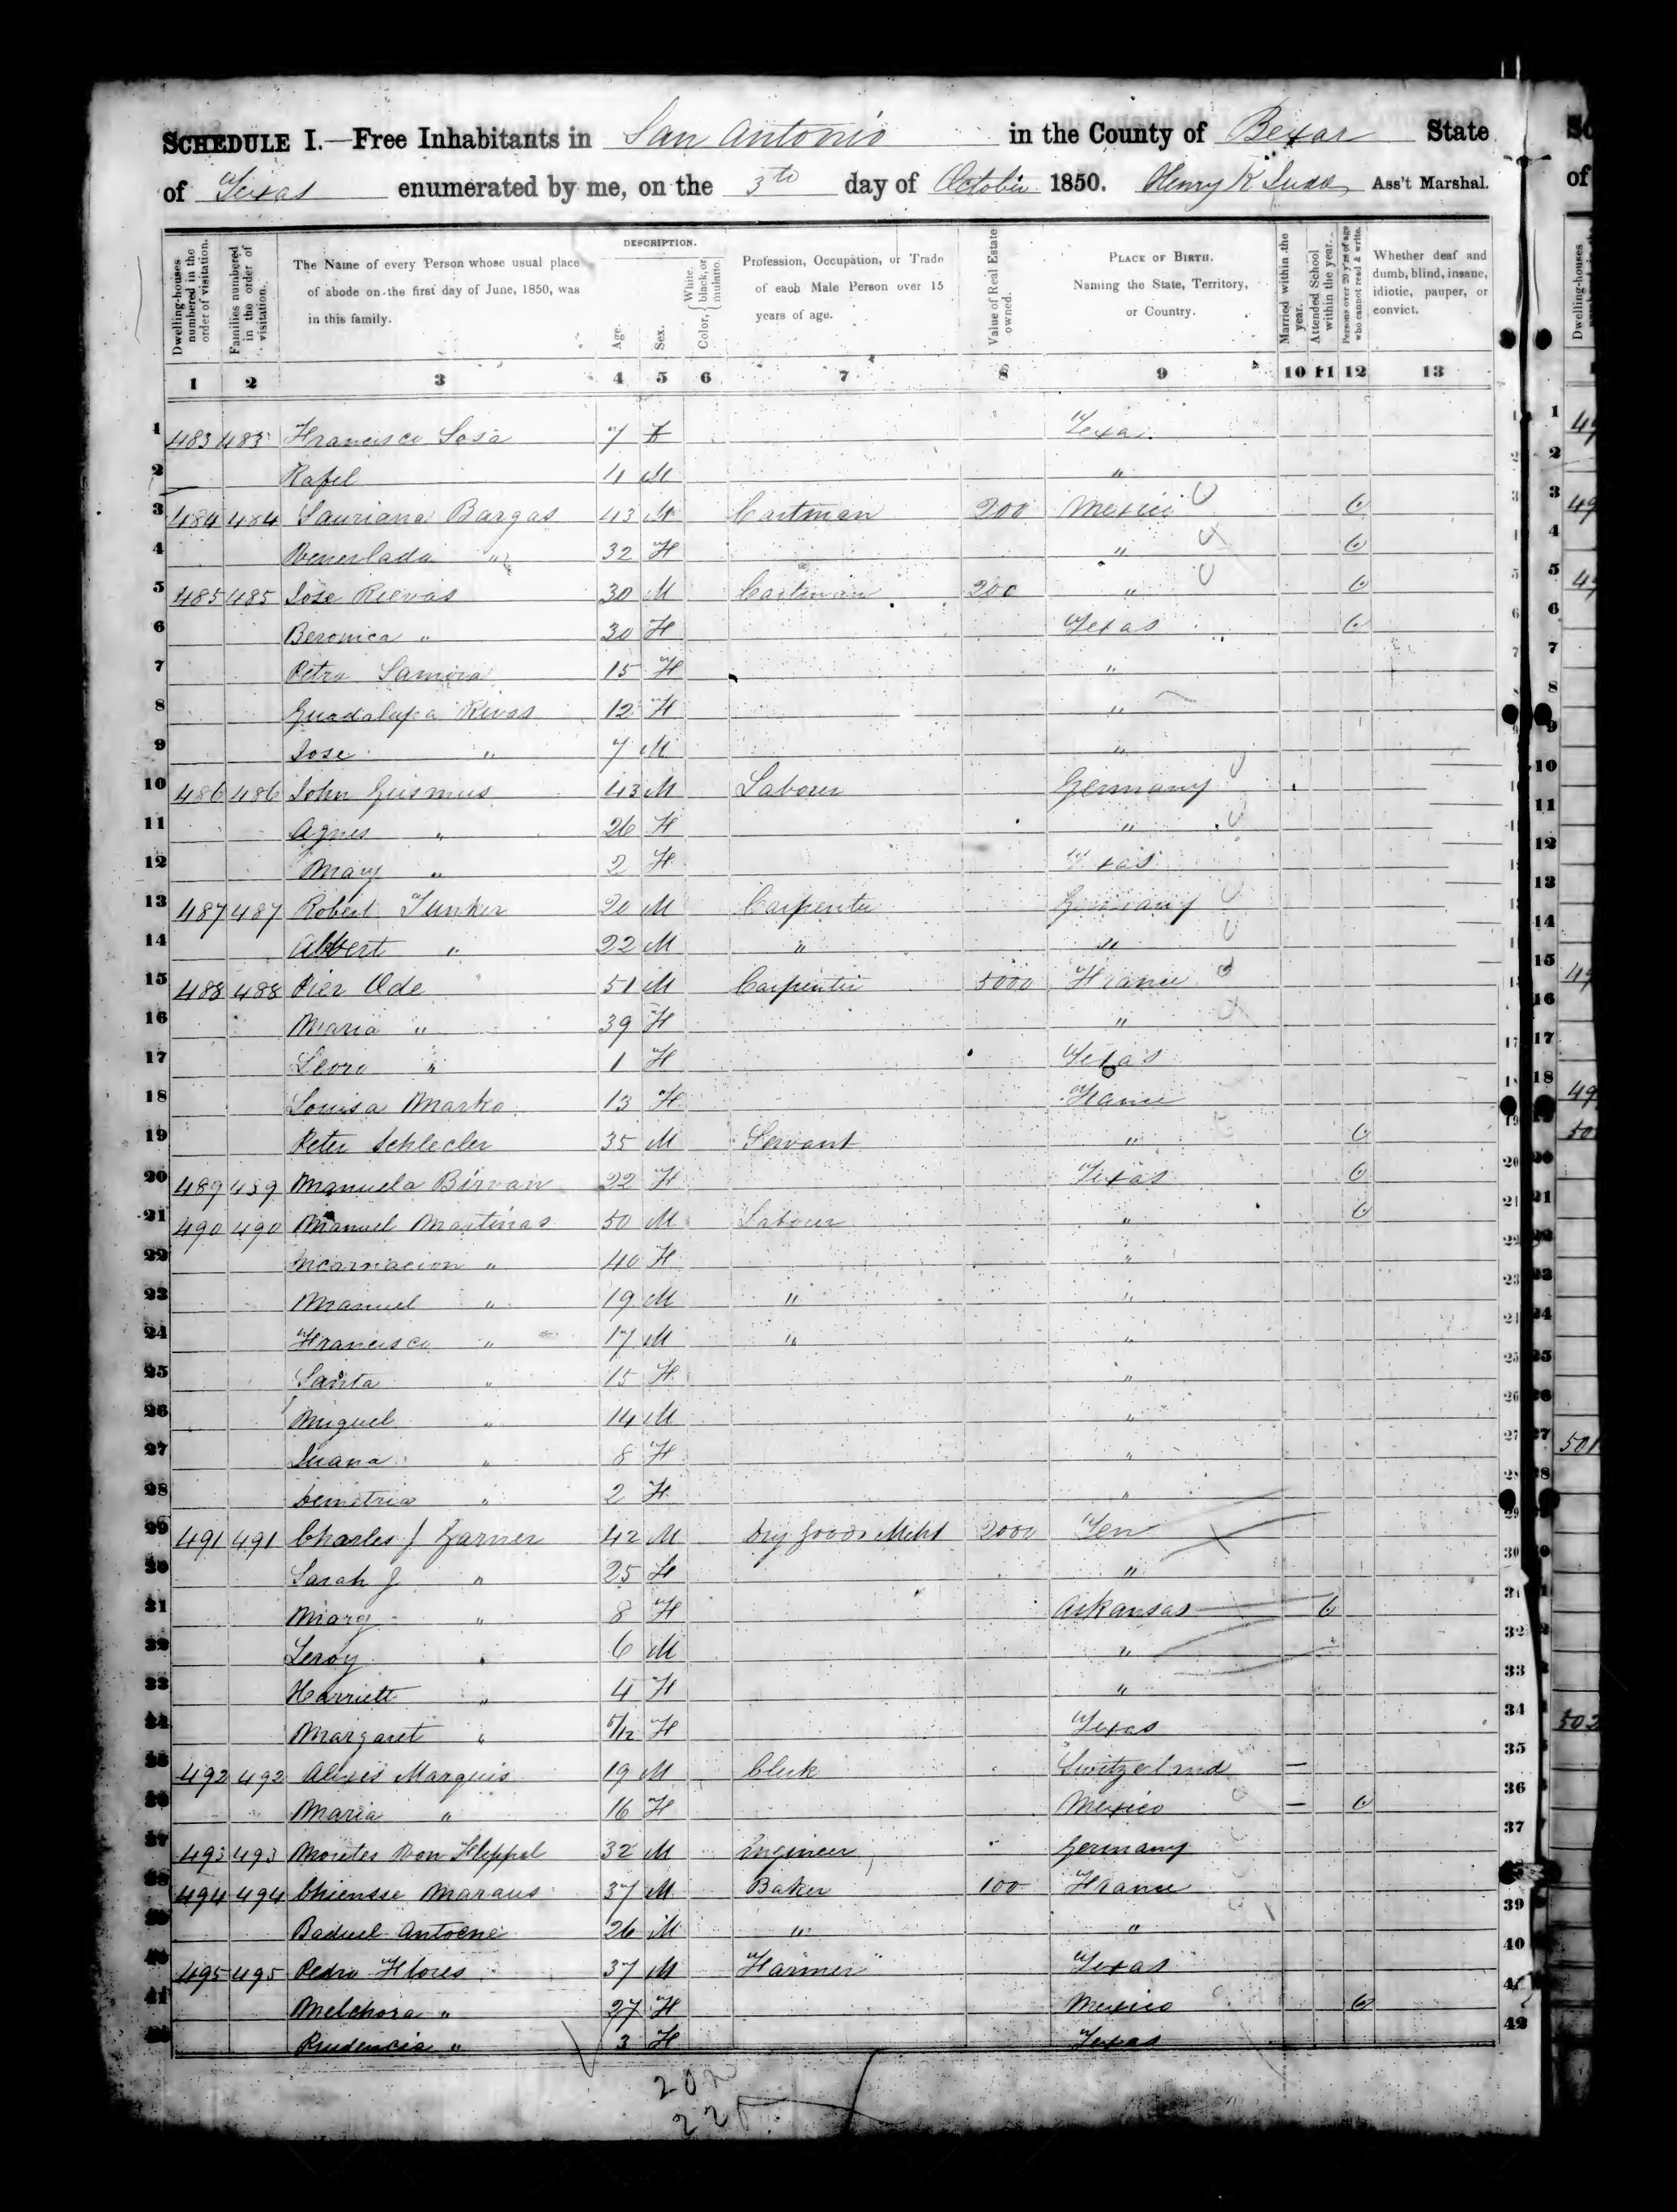 SCHEDULE I.—Free Inhabitants in San Antonio in the County of Bexar State
of Texas enumerated by me, on the 3th day of October 1850. Henry K Judd Ass't Marshal.
Dwelling-houses numbered in the order of visitation.
Families numbered in the order of visitation.
The Name of every Person whose usual place of abode on the first day of June, 1850, was in this family.
DESCRIPTION.
Age.
Sex.
Color, White, black, or mulatto.
Profession, Occupation, or Trade of each Male Person over 15 years of age.
Value of Real Estate owned.
PLACE OF BIRTH. Naming the State, Territory, or Country.
Married within the year.
Attended School within the year.
Persons over 20 y'rs of age who cannot read & write.
Whether deaf and dumb, blind, insane, idiotic, pauper, or convict.
1 2 3 4 5 6 7 8 9 10 11 12 13
1 483 483 Francisco Sosa 7 F Texas
2 Rafel 4 M "
3 484 484 Lauriana Bargas 43 M Cartman 200 Mexico
4 Venerlada " 32 F "
5 485 485 Jose Rievas 30 M Cartman 200 "
6 Beronica " 30 F Texas
7 Petra Samora 15 F "
8 Guadalupa Rivas 12 F "
9 Jose " 7 M "
10 486 486 John Geismus 43 M Labour Germany
11 Agnes " 26 F "
12 Mary " 2 F Texas
13 487 487 Robert Junker 20 M Carpenter Germany
14 Albert " 22 M " "
15 488 488 Pier Ode 51 M Carpenter 5000 France
16 Maria " 39 F "
17 Leoro " 1 F Texas
18 Louisa Marko 13 F France
19 Peter Schlecler 35 M Servant "
20 489 489 Manuela Birvan 22 F Texas
21 490 490 Manuel Martinas 50 M Labour "
22 Incarnacion " 40 F "
23 Manuel " 19 M " "
24 Francisco " 17 M " "
25 Santa " 15 F "
26 Miguel " 14 M "
27 Juana " 8 F "
28 Demetria " 2 F "
29 491 491 Charles J Zarner 42 M Dry Goods Mcht 2000 Ten
30 Sarah J " 25 F "
31 Mary " 8 F Arkansas
32 Leroy " 6 M "
33 Harriett " 4 F "
34 Margaret " 5/12 F Texas
35 492 492 Alexis Marquis 19 M Clerk Switzerland
36 Maria " 16 F Mexico
37 493 493 Moretes Von Hippel 32 M Engineer Germany
38 494 494 Chiensse Maraus 37 M Baker 100 France
39 Baduel Antoene 26 M " "
40 495 495 Pedro Flores 37 M Farmer Texas
41 Melchora " 27 F Mexico
42 Prudencia " 3 F Texas